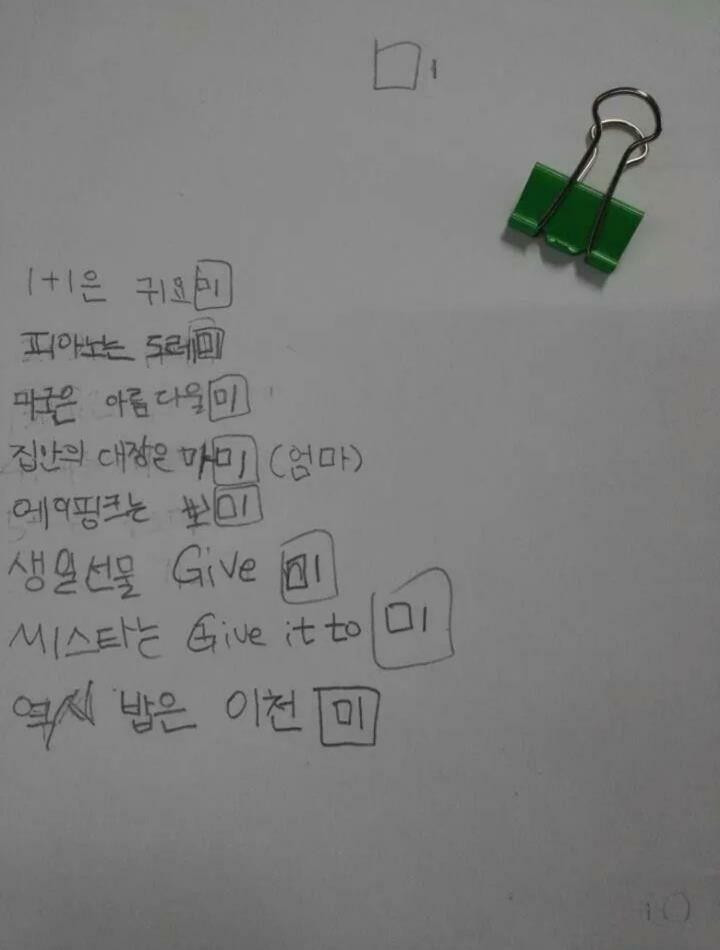 미
1+1은 귀요미
피아노는 도레미
미국은 아름다울미
집안의 대장은 마미 (엄마)
에이핑크는 뽀미
생일선물 Give 미
씨스타는 Give it to 미
역시 밥은 이천미